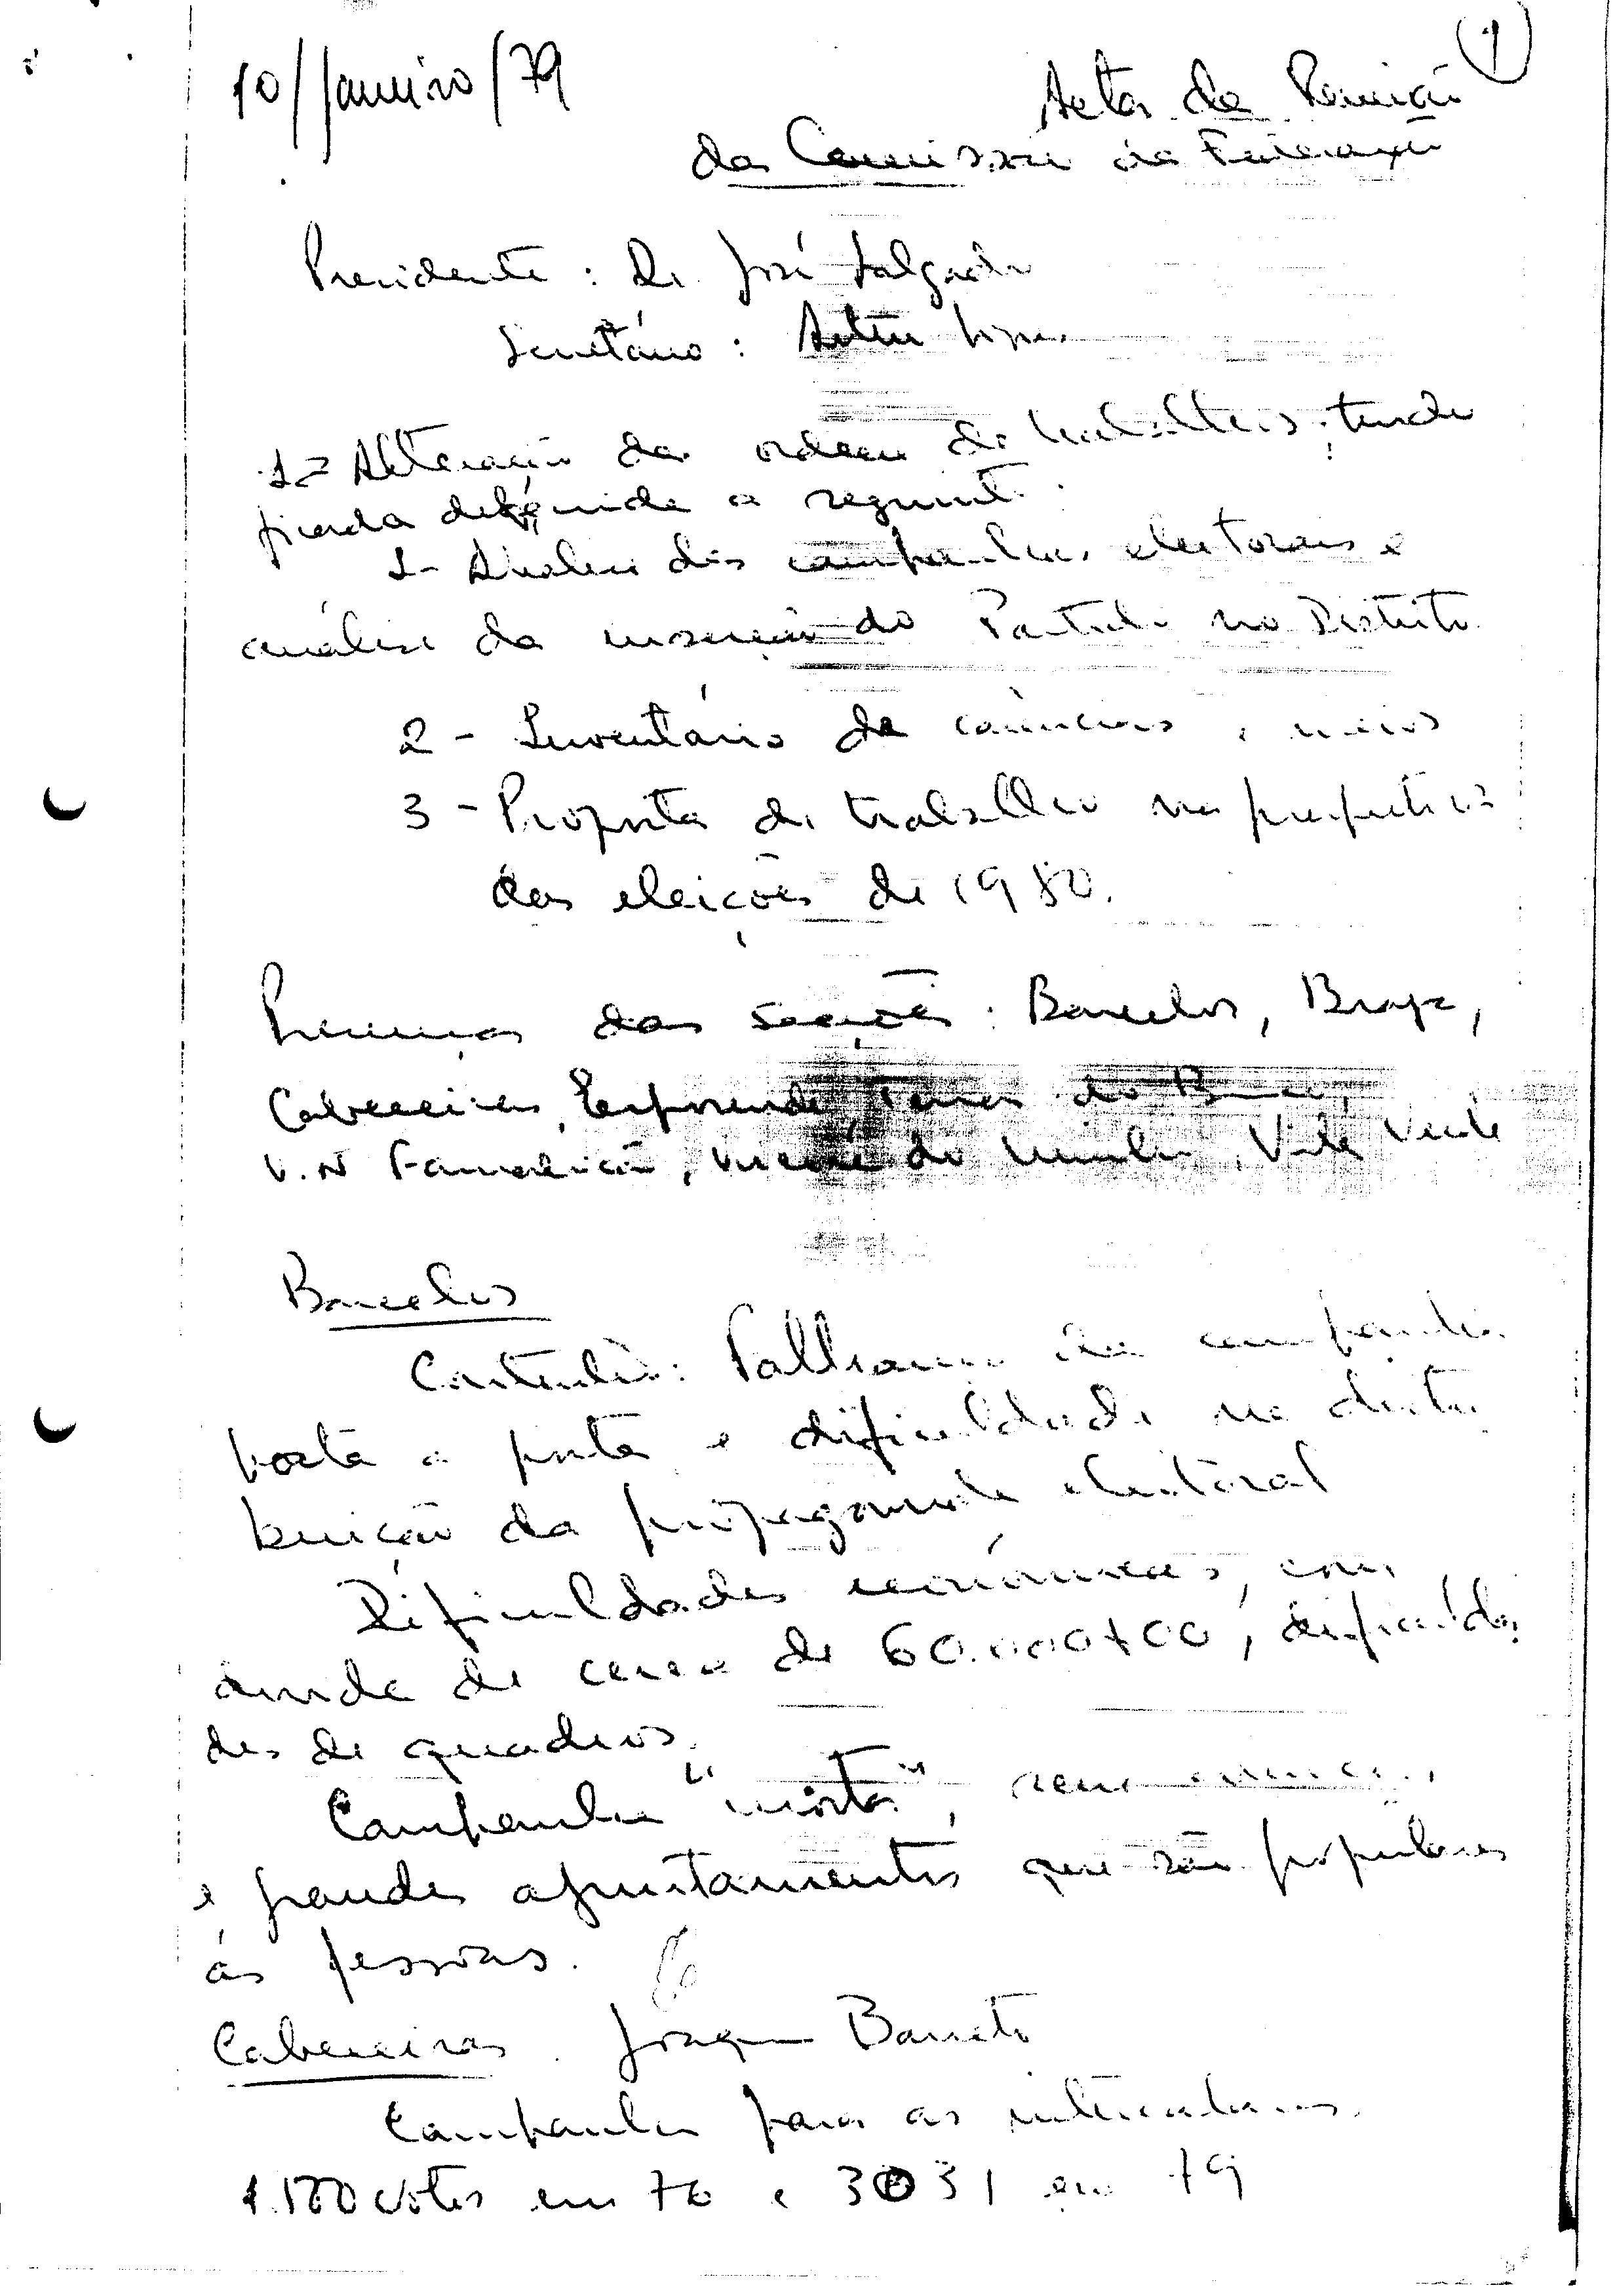 (1)
10/Janeiro/79
Acta da Reunião
da Comissão da Federação
Presidente: Dr. José Salgado
Secretário: Artur Lopes
1= Alteração da ordem de trabalhos, tendo
ficado definida a seguinte:
1- Análise das campanhas eleitorais e
análise da inserção do Partido no Distrito
2 - Inventário de carências, meios
3 - Proposta de trabalho na perspectiva
das eleições de 1980.
Presenças das secções: Barcelos, Braga,
Cabeceiras, Esposende, Terras do Bouro,
V. N Famalicão, Vieira do Minho, Vila Verde
Barcelos
: Falharam campanha
porta a porta e dificuldade na distri
buição da propaganda eleitoral
Dificuldades económicas, com
de cerca de 60.000$00, dificulda
des de quadros.
Campanha "morta", sem
e grandes ajuntamentos que são populares
ás pessoas.
Cabeceiras. Joaquim Barreto
Campanha para as intercalares.
1.100 votos em 76 e 3031 em 79